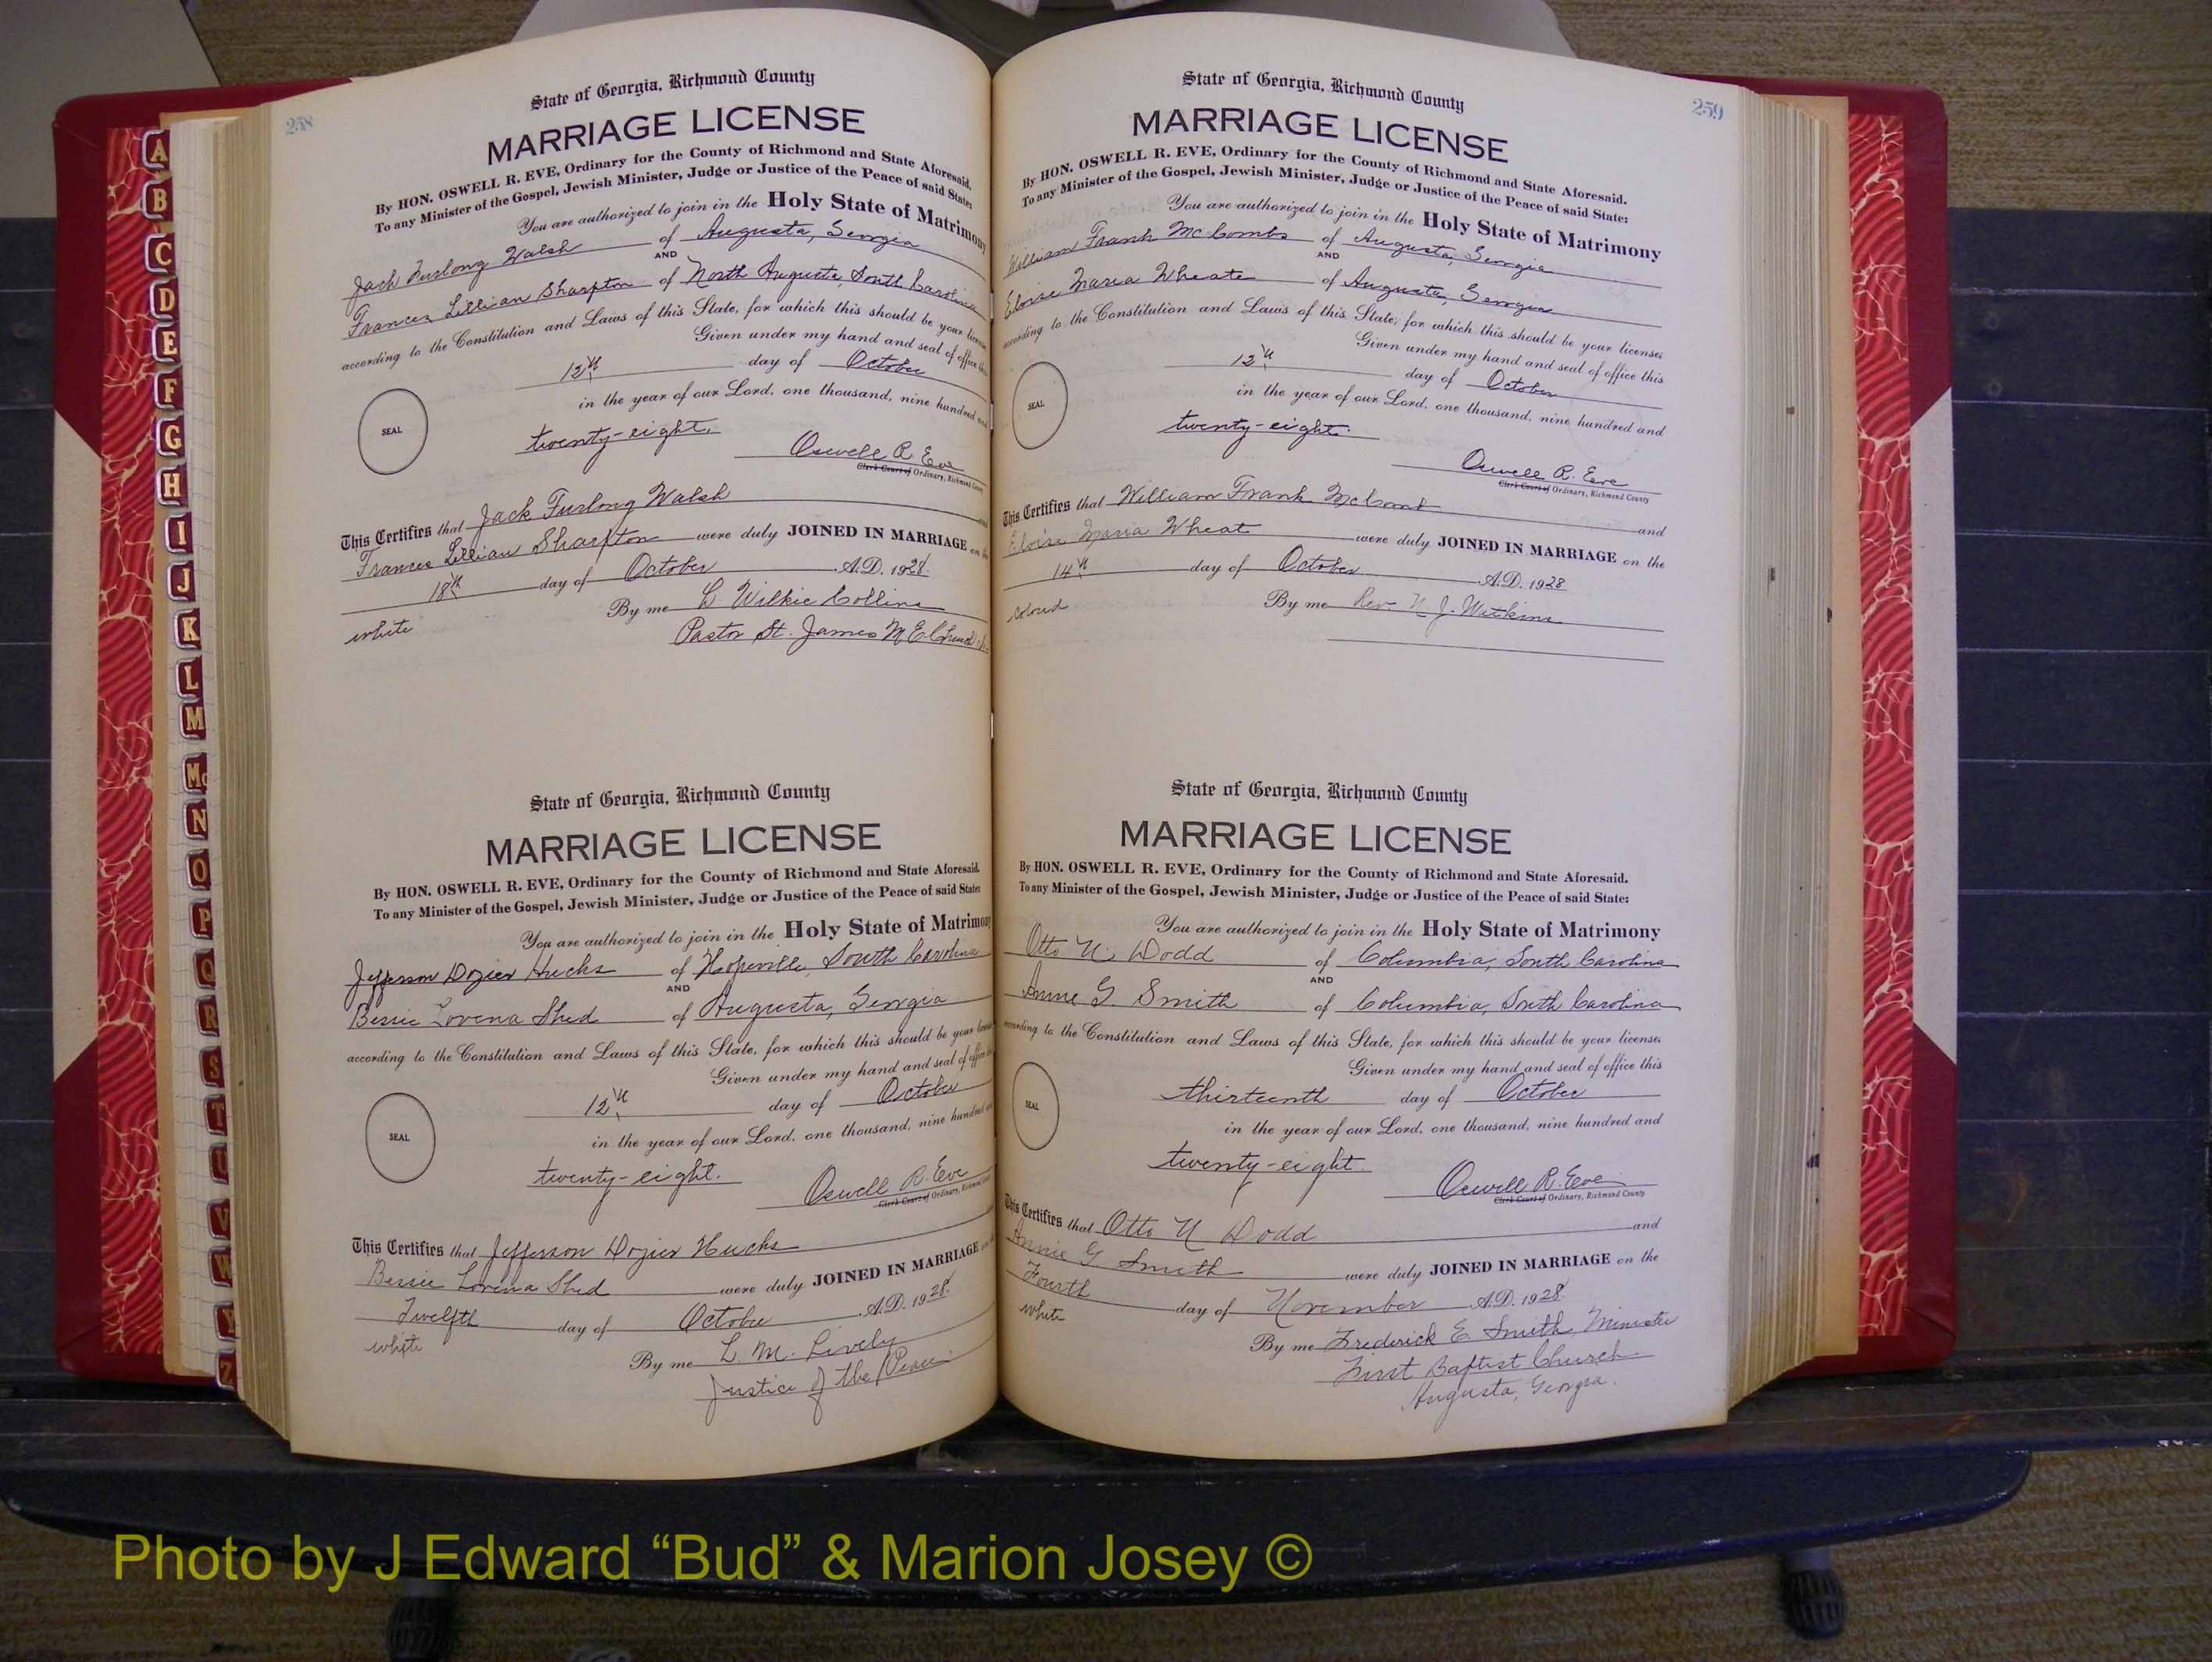 258
State of Georgia, Richmond County
MARRIAGE LICENSE
By HON. OSWELL R. EVE, Ordinary for the County of Richmond and State Aforesaid.
To any Minister of the Gospel, Jewish Minister, Judge or Justice of the Peace of said State:
You are authorized to join in the Holy State of Matrimony
Jack Furlong Walsh of Augusta, Georgia
AND
Frances Lillian Sharpton of North Augusta, South Carolina
according to the Constitution and Laws of this State, for which this should be your license
Given under my hand and seal of office this
12th day of October
in the year of our Lord, one thousand, nine hundred and
SEAL
twenty-eight.
Oswell R. Eve
Clerk Court of Ordinary, Richmond County
This Certifies that Jack Furlong Walsh and
Frances Lillian Sharpton were duly JOINED IN MARRIAGE on the
18th day of October A.D. 1928.
By me L. Wilkie Collins
white
Pastor St. James M E Church
State of Georgia, Richmond County
MARRIAGE LICENSE
By HON. OSWELL R. EVE, Ordinary for the County of Richmond and State Aforesaid.
To any Minister of the Gospel, Jewish Minister, Judge or Justice of the Peace of said State:
You are authorized to join in the Holy State of Matrimony
Jefferson Dozier Hucks of Hopeville, South Carolina
AND
Bessie Lovena Shed of Augusta, Georgia
according to the Constitution and Laws of this State, for which this should be your license
Given under my hand and seal of office this
12th day of October
in the year of our Lord, one thousand, nine hundred and
SEAL
twenty-eight.
Oswell R. Eve
Clerk Court of Ordinary, Richmond County
This Certifies that Jefferson Dozier Hucks
Bessie Lovena Shed were duly JOINED IN MARRIAGE
Twelfth day of October A.D. 1928.
white
By me L. M. Lively
Justice of the Peace
259
State of Georgia, Richmond County
MARRIAGE LICENSE
By HON. OSWELL R. EVE, Ordinary for the County of Richmond and State Aforesaid.
To any Minister of the Gospel, Jewish Minister, Judge or Justice of the Peace of said State:
You are authorized to join in the Holy State of Matrimony
William Frank McCombs of Augusta, Georgia
AND
Eloise Maria Wheate of Augusta, Georgia
according to the Constitution and Laws of this State, for which this should be your license;
Given under my hand and seal of office this
12th day of October
in the year of our Lord, one thousand, nine hundred and
SEAL
twenty-eight.
Oswell R. Eve
Clerk Court of Ordinary, Richmond County
This Certifies that William Frank McComb
and
Eloise Maria Wheat were duly JOINED IN MARRIAGE on the
14th day of October A.D. 1928
colored
By me Rev. N. J. Watkins
State of Georgia, Richmond County
MARRIAGE LICENSE
By HON. OSWELL R. EVE, Ordinary for the County of Richmond and State Aforesaid.
To any Minister of the Gospel, Jewish Minister, Judge or Justice of the Peace of said State:
You are authorized to join in the Holy State of Matrimony
Otto N. Dodd of Columbia, South Carolina
AND
Annie G Smith of Columbia, South Carolina
according to the Constitution and Laws of this State, for which this should be your license;
Given under my hand and seal of office this
thirteenth day of October
in the year of our Lord, one thousand, nine hundred and
SEAL
twenty-eight.
Oswell R. Eve
Clerk Court of Ordinary, Richmond County
This Certifies that Otto N Dodd and
Annie G Smith were duly JOINED IN MARRIAGE on the
Fourth day of November A.D. 1928
white
By me Frederick E. Smith, Minister
First Baptist Church
Augusta, Georgia.
A
B
C
D
E
F
G
H
I
J
K
L
M
Mc
N
O
P
Q
R
S
T
U
V
W
Y
Z
Photo by J Edward “Bud” & Marion Josey ©